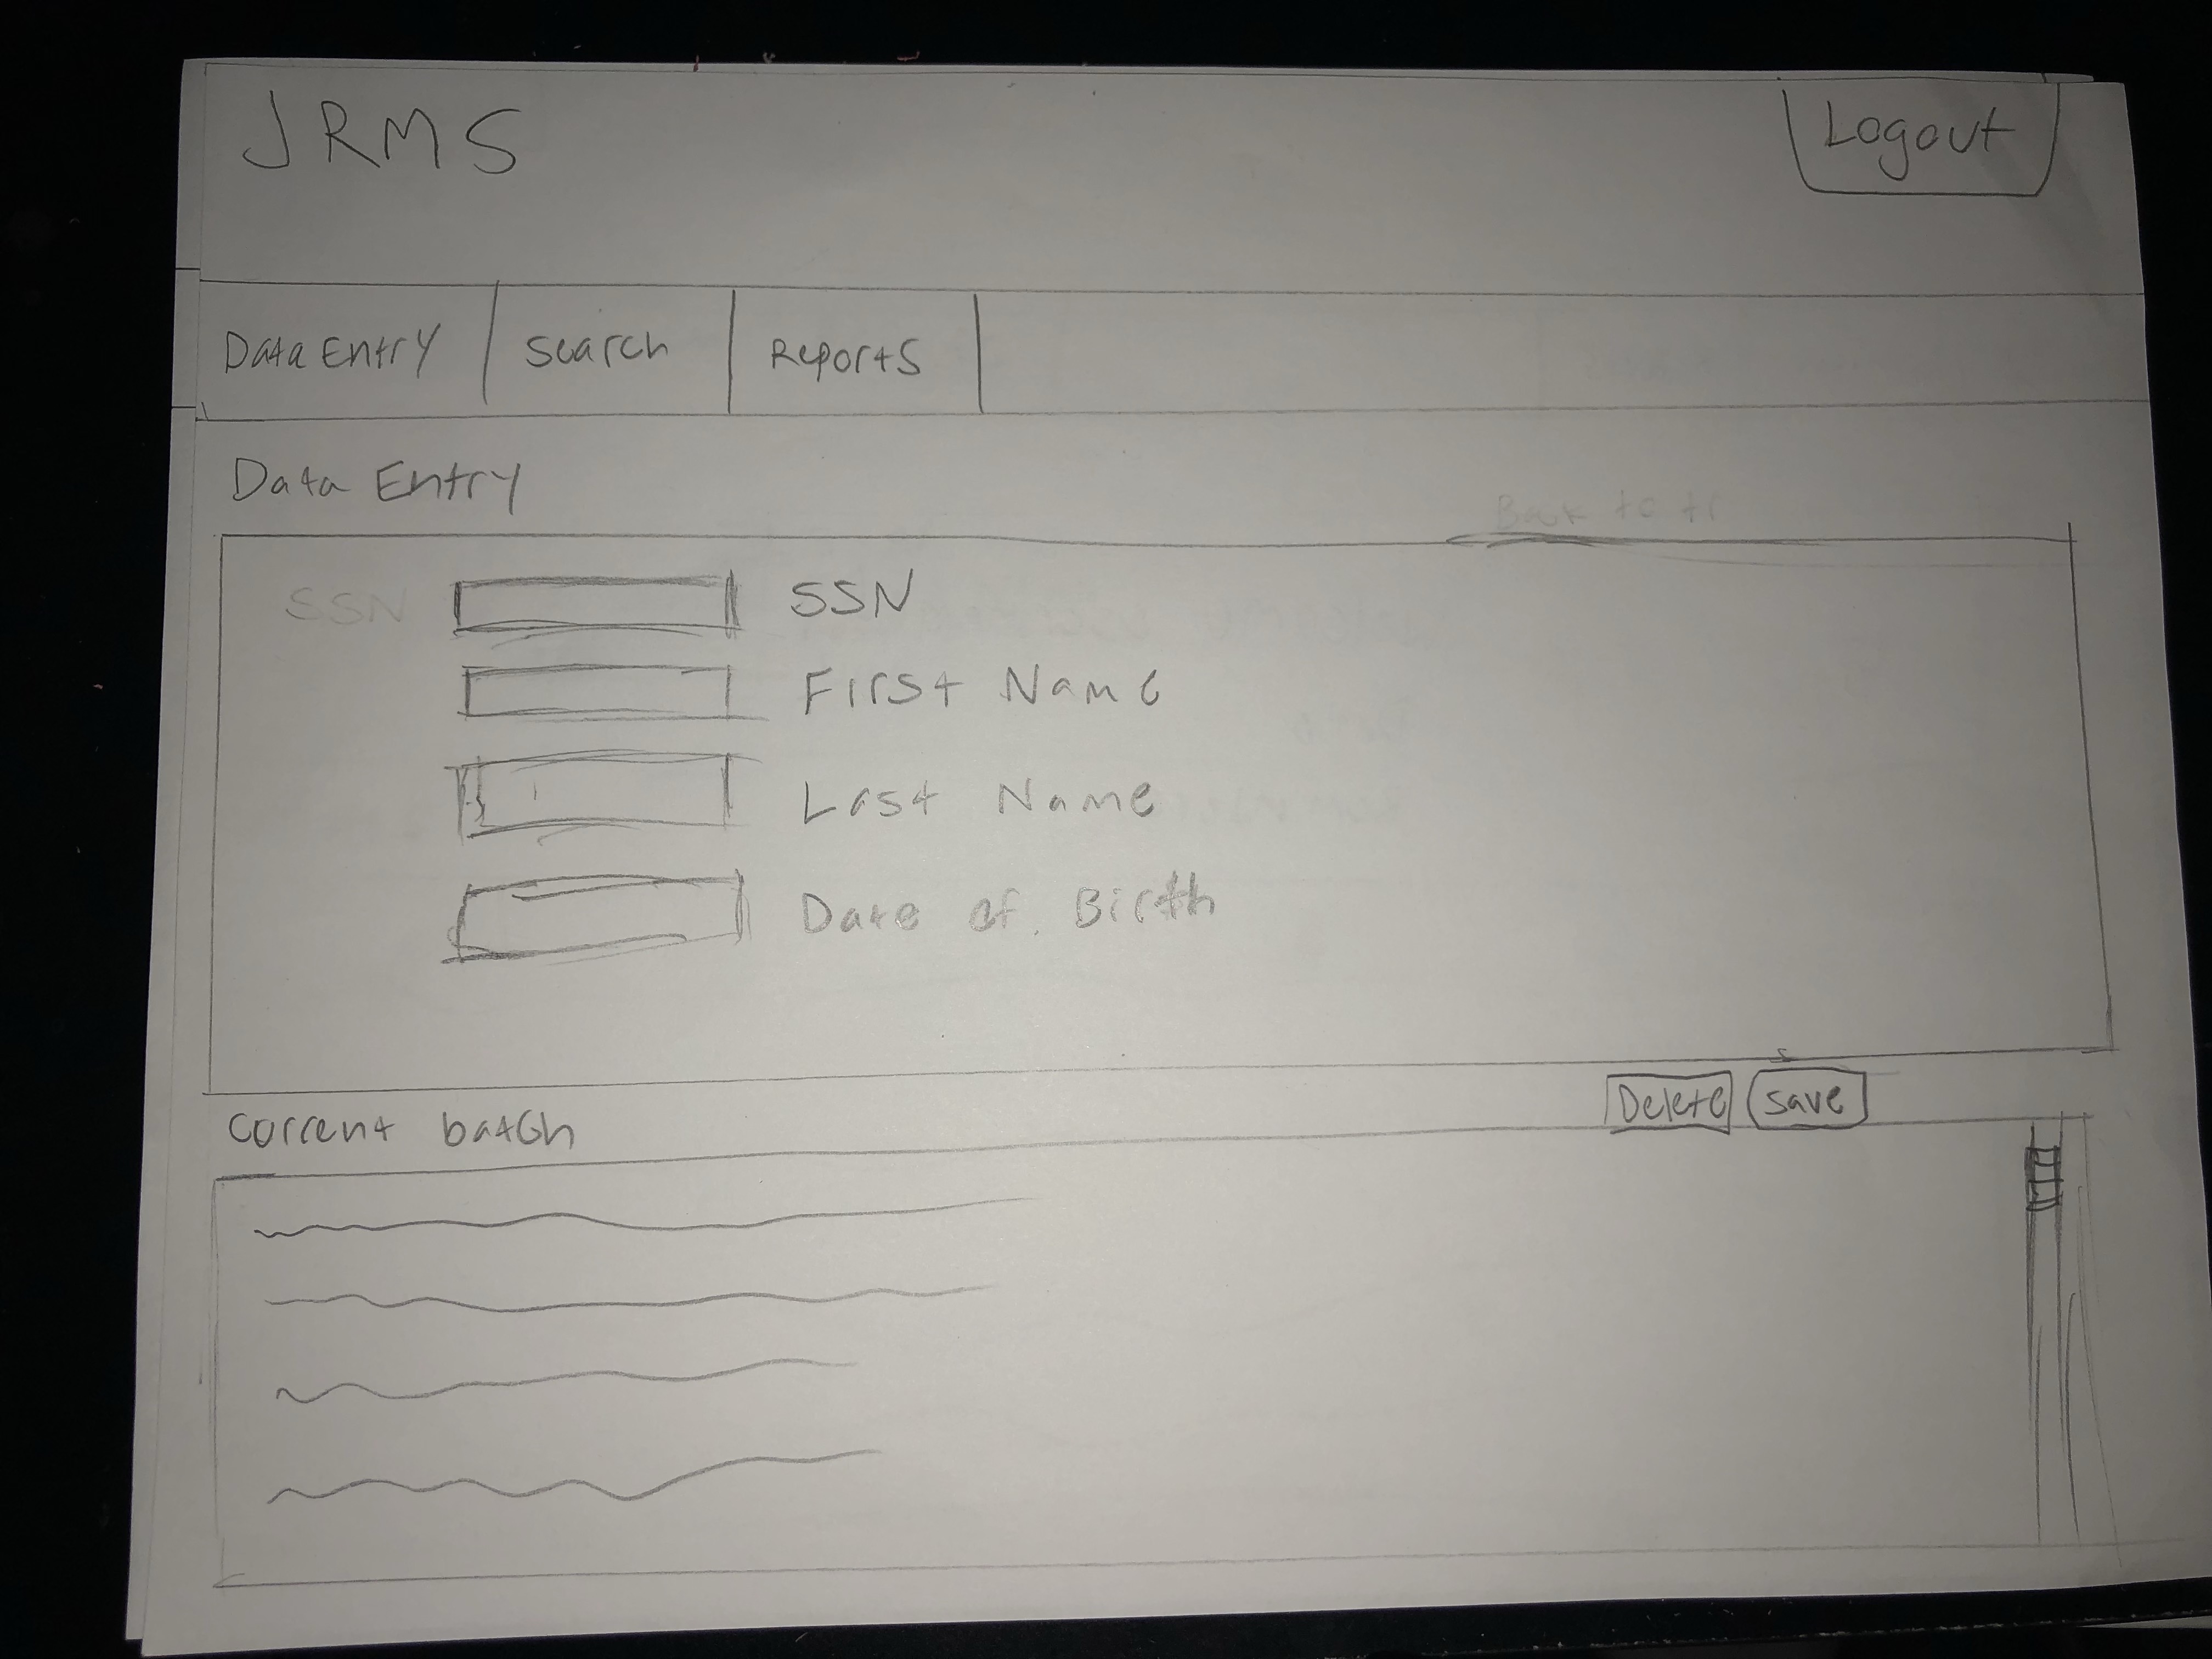 JRMS
Logout
Data Entry
Search
Reports
Data Entry
Back to tr
SSN
SSN
First Name
Last Name
Date of Birth
Delete
Save
current batch